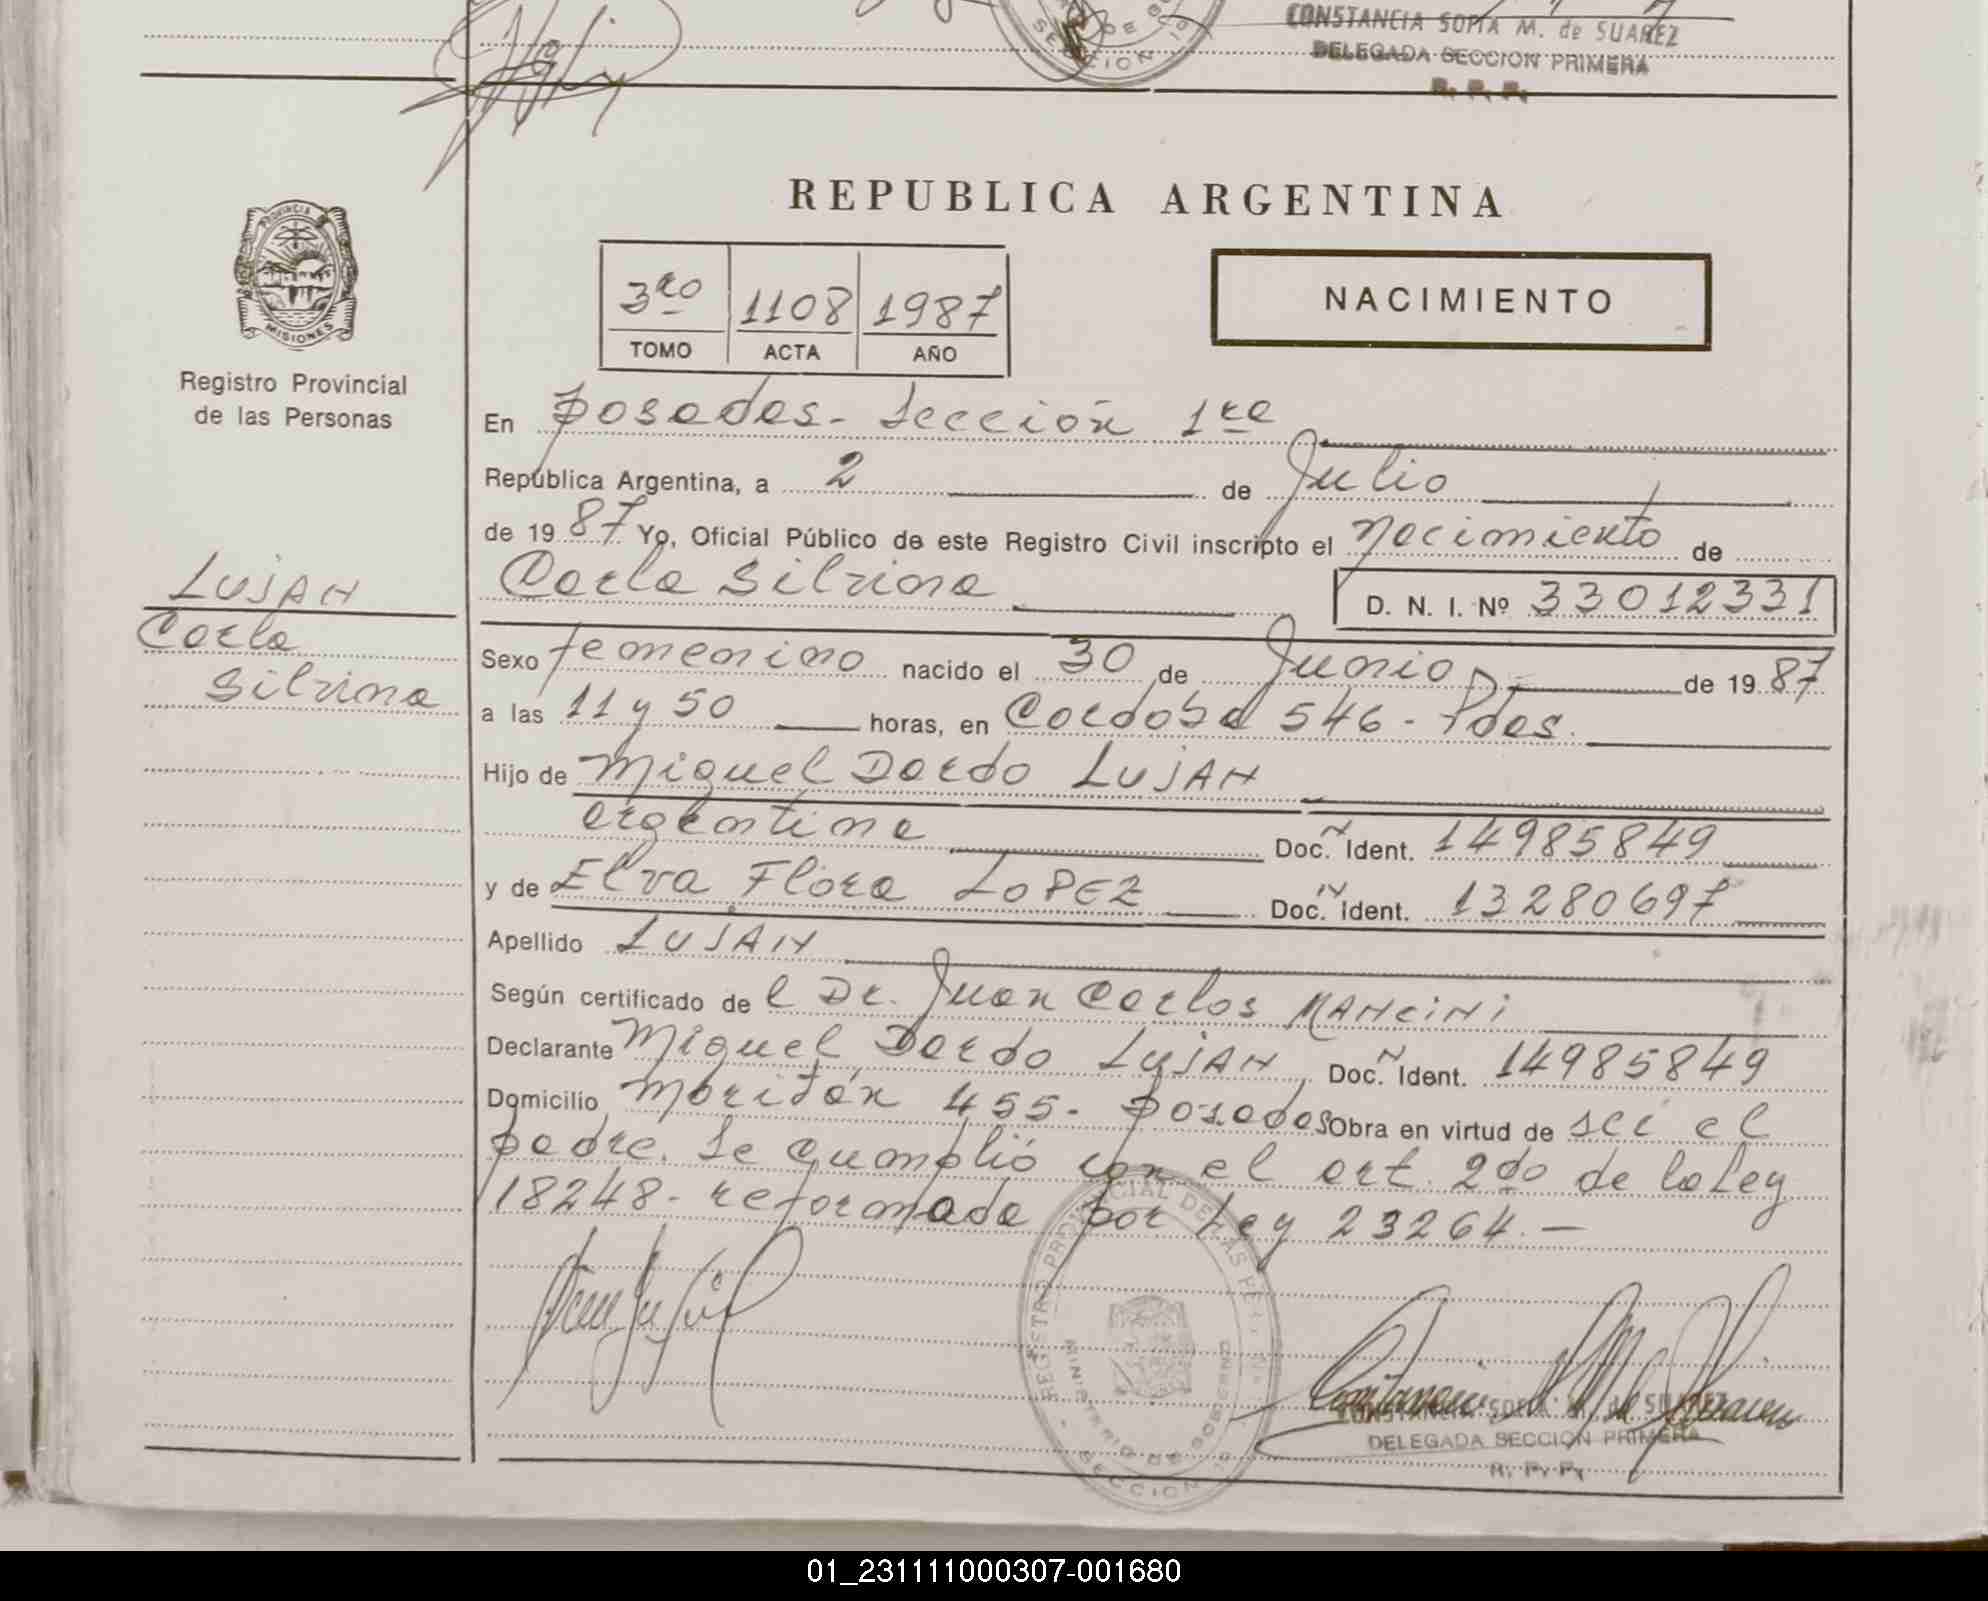 CONSTANCIA SOFIA M. de SUAREZ
DELEGADA SECCION PRIMERA
R. P. P.
SECCION 1a
PROVINCIA
MISIONES
Registro Provincial
de las Personas
LUJAN
Carla
Silvina
REPUBLICA ARGENTINA
3ro 1108 1987
TOMO ACTA AÑO
NACIMIENTO
En Posadas - Sección 1ra
República Argentina, a 2 de Julio
de 1987 Yo, Oficial Público de este Registro Civil inscripto el Nacimiento de
Carla Silvina D. N. I. Nº 33012331
Sexo femenino nacido el 30 de Junio de 1987
a las 11 y 50 horas, en Córdoba 546 - Pdas.
Hijo de Miguel Dardo LUJAN
argentina Doc. Ident. 14985849
y de Elva Flora LOPEZ Doc. Ident. 13280697
Apellido LUJAN
Según certificado de l Dr. Juan Carlos MANCINI
Declarante Miguel Dardo LUJAN, Doc. Ident. 14985849
Domicilio 455 - Posadas Obra en virtud de ser el
padre. Se cumplió con el art. 2do de la Ley
18248 - reformada por Ley 23264. —
REGISTRO PROVINCIAL DE LAS PER
MINISTERIO DE GOBIERNO
SECCION 1a
CONSTANCIA SOFIA M. de SUAREZ
DELEGADA SECCION PRIMERA
R. P. P.
01_231111000307-001680